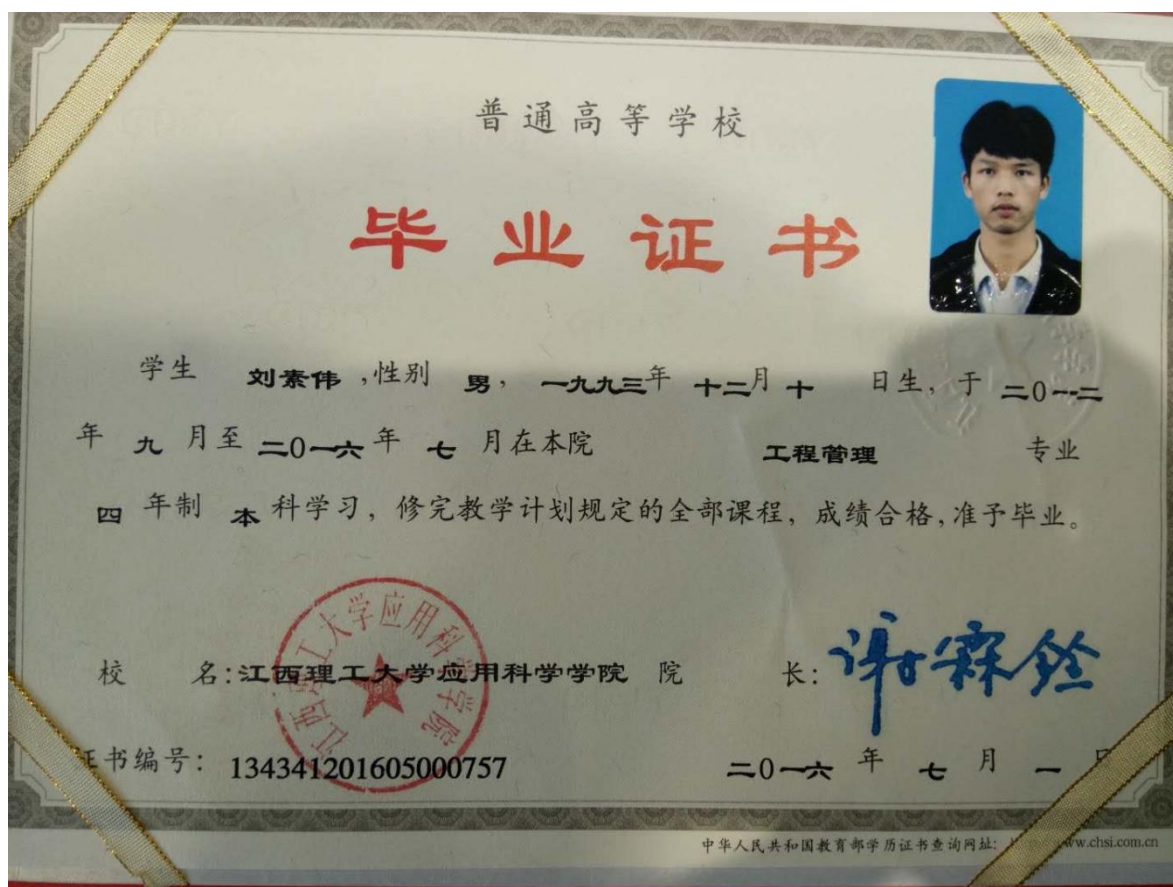 普通高等学校
毕业证书
学生 刘素伟 ,性别 男, 一九九三年 十二月 十 日生, 于 二0一二
年 九 月至 二0一六 年 七 月在本院 工程管理 专业
四 年制 本 科学习, 修完教学计划规定的全部课程, 成绩合格,准予毕业。
江西理工大学应用科学学院
校 名:江西理工大学应用科学学院 院 长: 谢霖铨
证书编号: 134341201605000757 二0一六 年 七 月 一 日
中华人民共和国教育部学历证书查询网址: www.chsi.com.cn